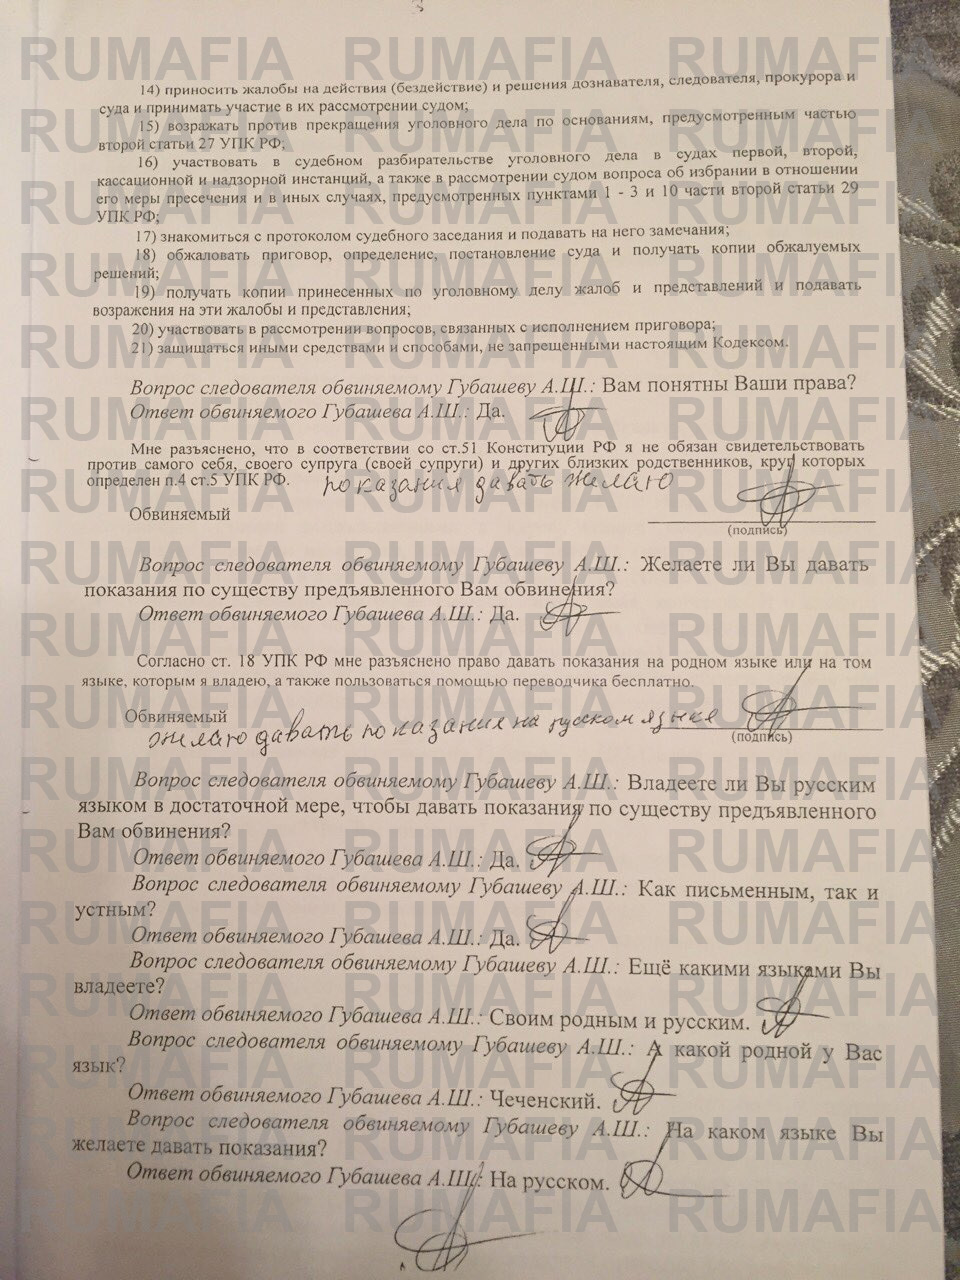 3
14) приносить жалобы на действия (бездействие) и решения дознавателя, следователя, прокурора и
суда и принимать участие в их рассмотрении судом;
15) возражать против прекращения уголовного дела по основаниям, предусмотренным частью
второй статьи 27 УПК РФ;
16) участвовать в судебном разбирательстве уголовного дела в судах первой, второй,
кассационной и надзорной инстанций, а также в рассмотрении судом вопроса об избрании в отношении
его меры пресечения и в иных случаях, предусмотренных пунктами 1 - 3 и 10 части второй статьи 29
УПК РФ;
17) знакомиться с протоколом судебного заседания и подавать на него замечания;
18) обжаловать приговор, определение, постановление суда и получать копии обжалуемых
решений;
19) получать копии принесенных по уголовному делу жалоб и представлений и подавать
возражения на эти жалобы и представления;
20) участвовать в рассмотрении вопросов, связанных с исполнением приговора;
21) защищаться иными средствами и способами, не запрещенными настоящим Кодексом.
Вопрос следователя обвиняемому Губашеву А.Ш.: Вам понятны Ваши права?
Ответ обвиняемого Губашева А.Ш.: Да.
Мне разъяснено, что в соответствии со ст.51 Конституции РФ я не обязан свидетельствовать
против самого себя, своего супруга (своей супруги) и других близких родственников, круг которых
определен п.4 ст.5 УПК РФ. показания давать желаю
Обвиняемый
(подпись)
Вопрос следователя обвиняемому Губашеву А.Ш.: Желаете ли Вы давать
показания по существу предъявленного Вам обвинения?
Ответ обвиняемого Губашева А.Ш.: Да.
Согласно ст. 18 УПК РФ мне разъяснено право давать показания на родном языке или на том
языке, которым я владею, а также пользоваться помощью переводчика бесплатно.
Обвиняемый
желаю давать показания на русском языке
(подпись)
Вопрос следователя обвиняемому Губашеву А.Ш.: Владеете ли Вы русским
языком в достаточной мере, чтобы давать показания по существу предъявленного
Вам обвинения?
Ответ обвиняемого Губашева А.Ш.: Да.
Вопрос следователя обвиняемому Губашеву А.Ш.: Как письменным, так и
устным?
Ответ обвиняемого Губашева А.Ш.: Да.
Вопрос следователя обвиняемому Губашеву А.Ш.: Ещё какими языками Вы
владеете?
Ответ обвиняемого Губашева А.Ш.: Своим родным и русским.
Вопрос следователя обвиняемому Губашеву А.Ш.: А какой родной у Вас
язык?
Ответ обвиняемого Губашева А.Ш.: Чеченский.
Вопрос следователя обвиняемому Губашеву А.Ш.: На каком языке Вы
желаете давать показания?
Ответ обвиняемого Губашева А.Ш.: На русском.
RUMAFIA